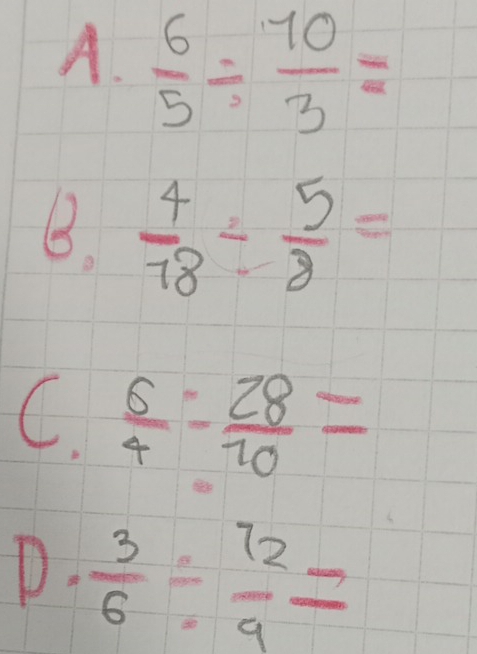 A. 6/5 ÷ 10/3 =
B. 4/18 ÷ 5/8 =
C. 6/4 ÷ 28/10 =
D. 3/6 ÷ 12/9 =